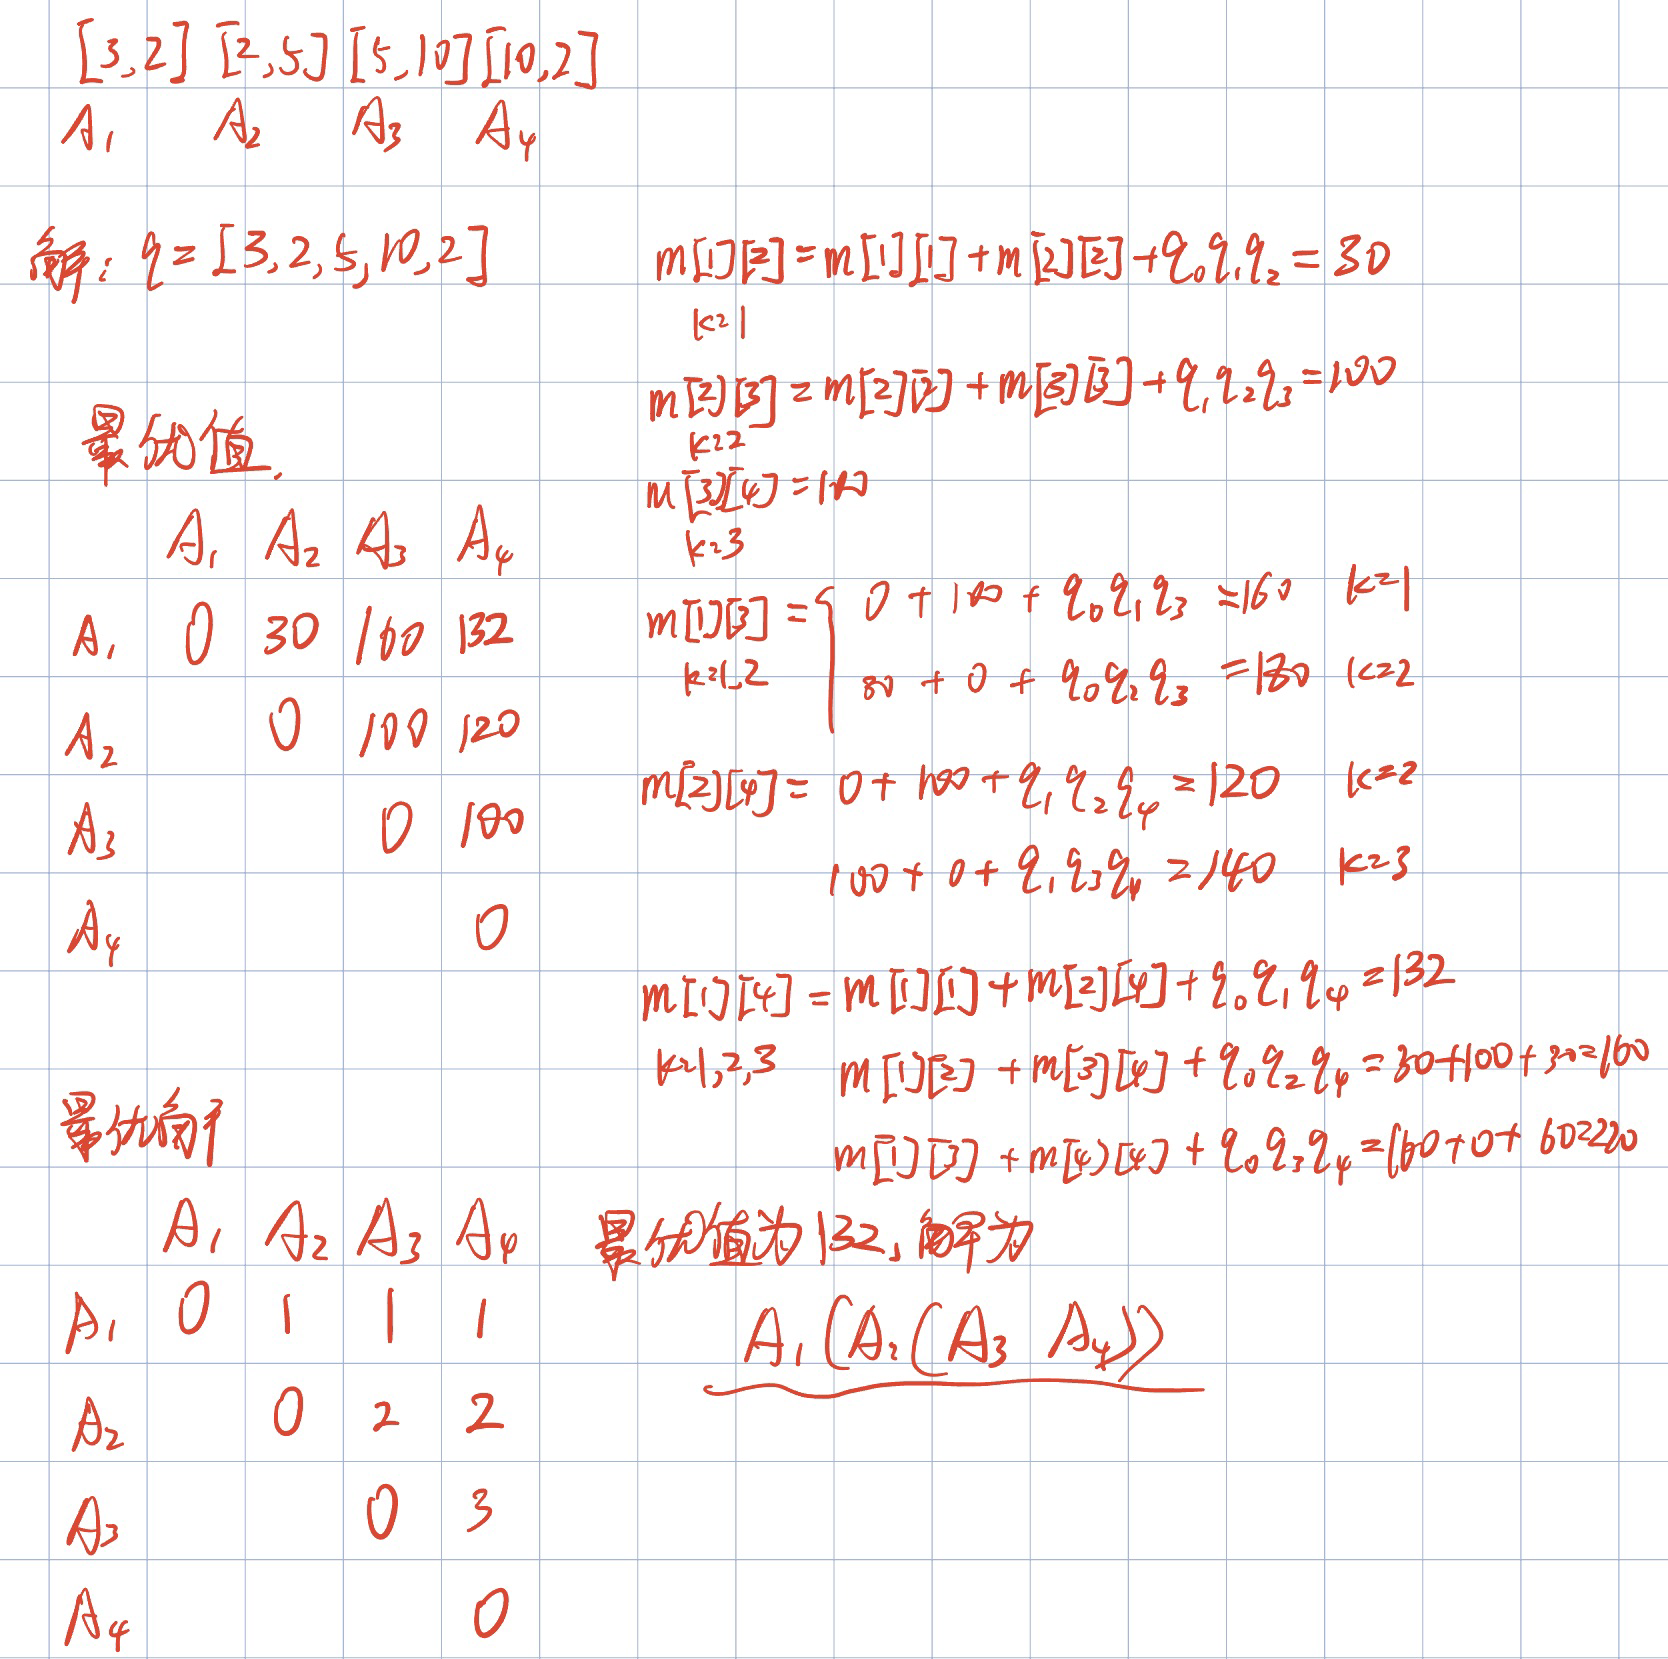 [3,2] [2,5] [5,10] [10,2]
A₁ A₂ A₃ A₄
解: q = [3,2,5,10,2]
最优值.
A₁ A₂ A₃ A₄
A₁ 0 30 160 132
A₂ 0 100 120
A₃ 0 100
A₄ 0
最优解
A₁ A₂ A₃ A₄
A₁ 0 1 1 1
A₂ 0 2 2
A₃ 0 3
A₄ 0
m[1][2] = m[1][1] + m[2][2] + q₀q₁q₂ = 30
k=1
m[2][3] = m[2][2] + m[3][3] + q₁q₂q₃ = 100
k=2
m[3][4] = 100
k=3
m[1][3] = { 0 + 100 + q₀q₁q₃ = 160 k=1
k=1,2 30 + 0 + q₀q₂q₃ = 180 k=2
m[2][4] = 0 + 100 + q₁q₂q₄ = 120 k=2
100 + 0 + q₁q₃q₄ = 140 k=3
m[1][4] = m[1][1] + m[2][4] + q₀q₁q₄ = 132
k=1,2,3 m[1][2] + m[3][4] + q₀q₂q₄ = 30+100+30=160
m[1][3] + m[4][4] + q₀q₃q₄ = 160+0+60=220
最优值为132, 解为
A₁(A₂(A₃ A₄))